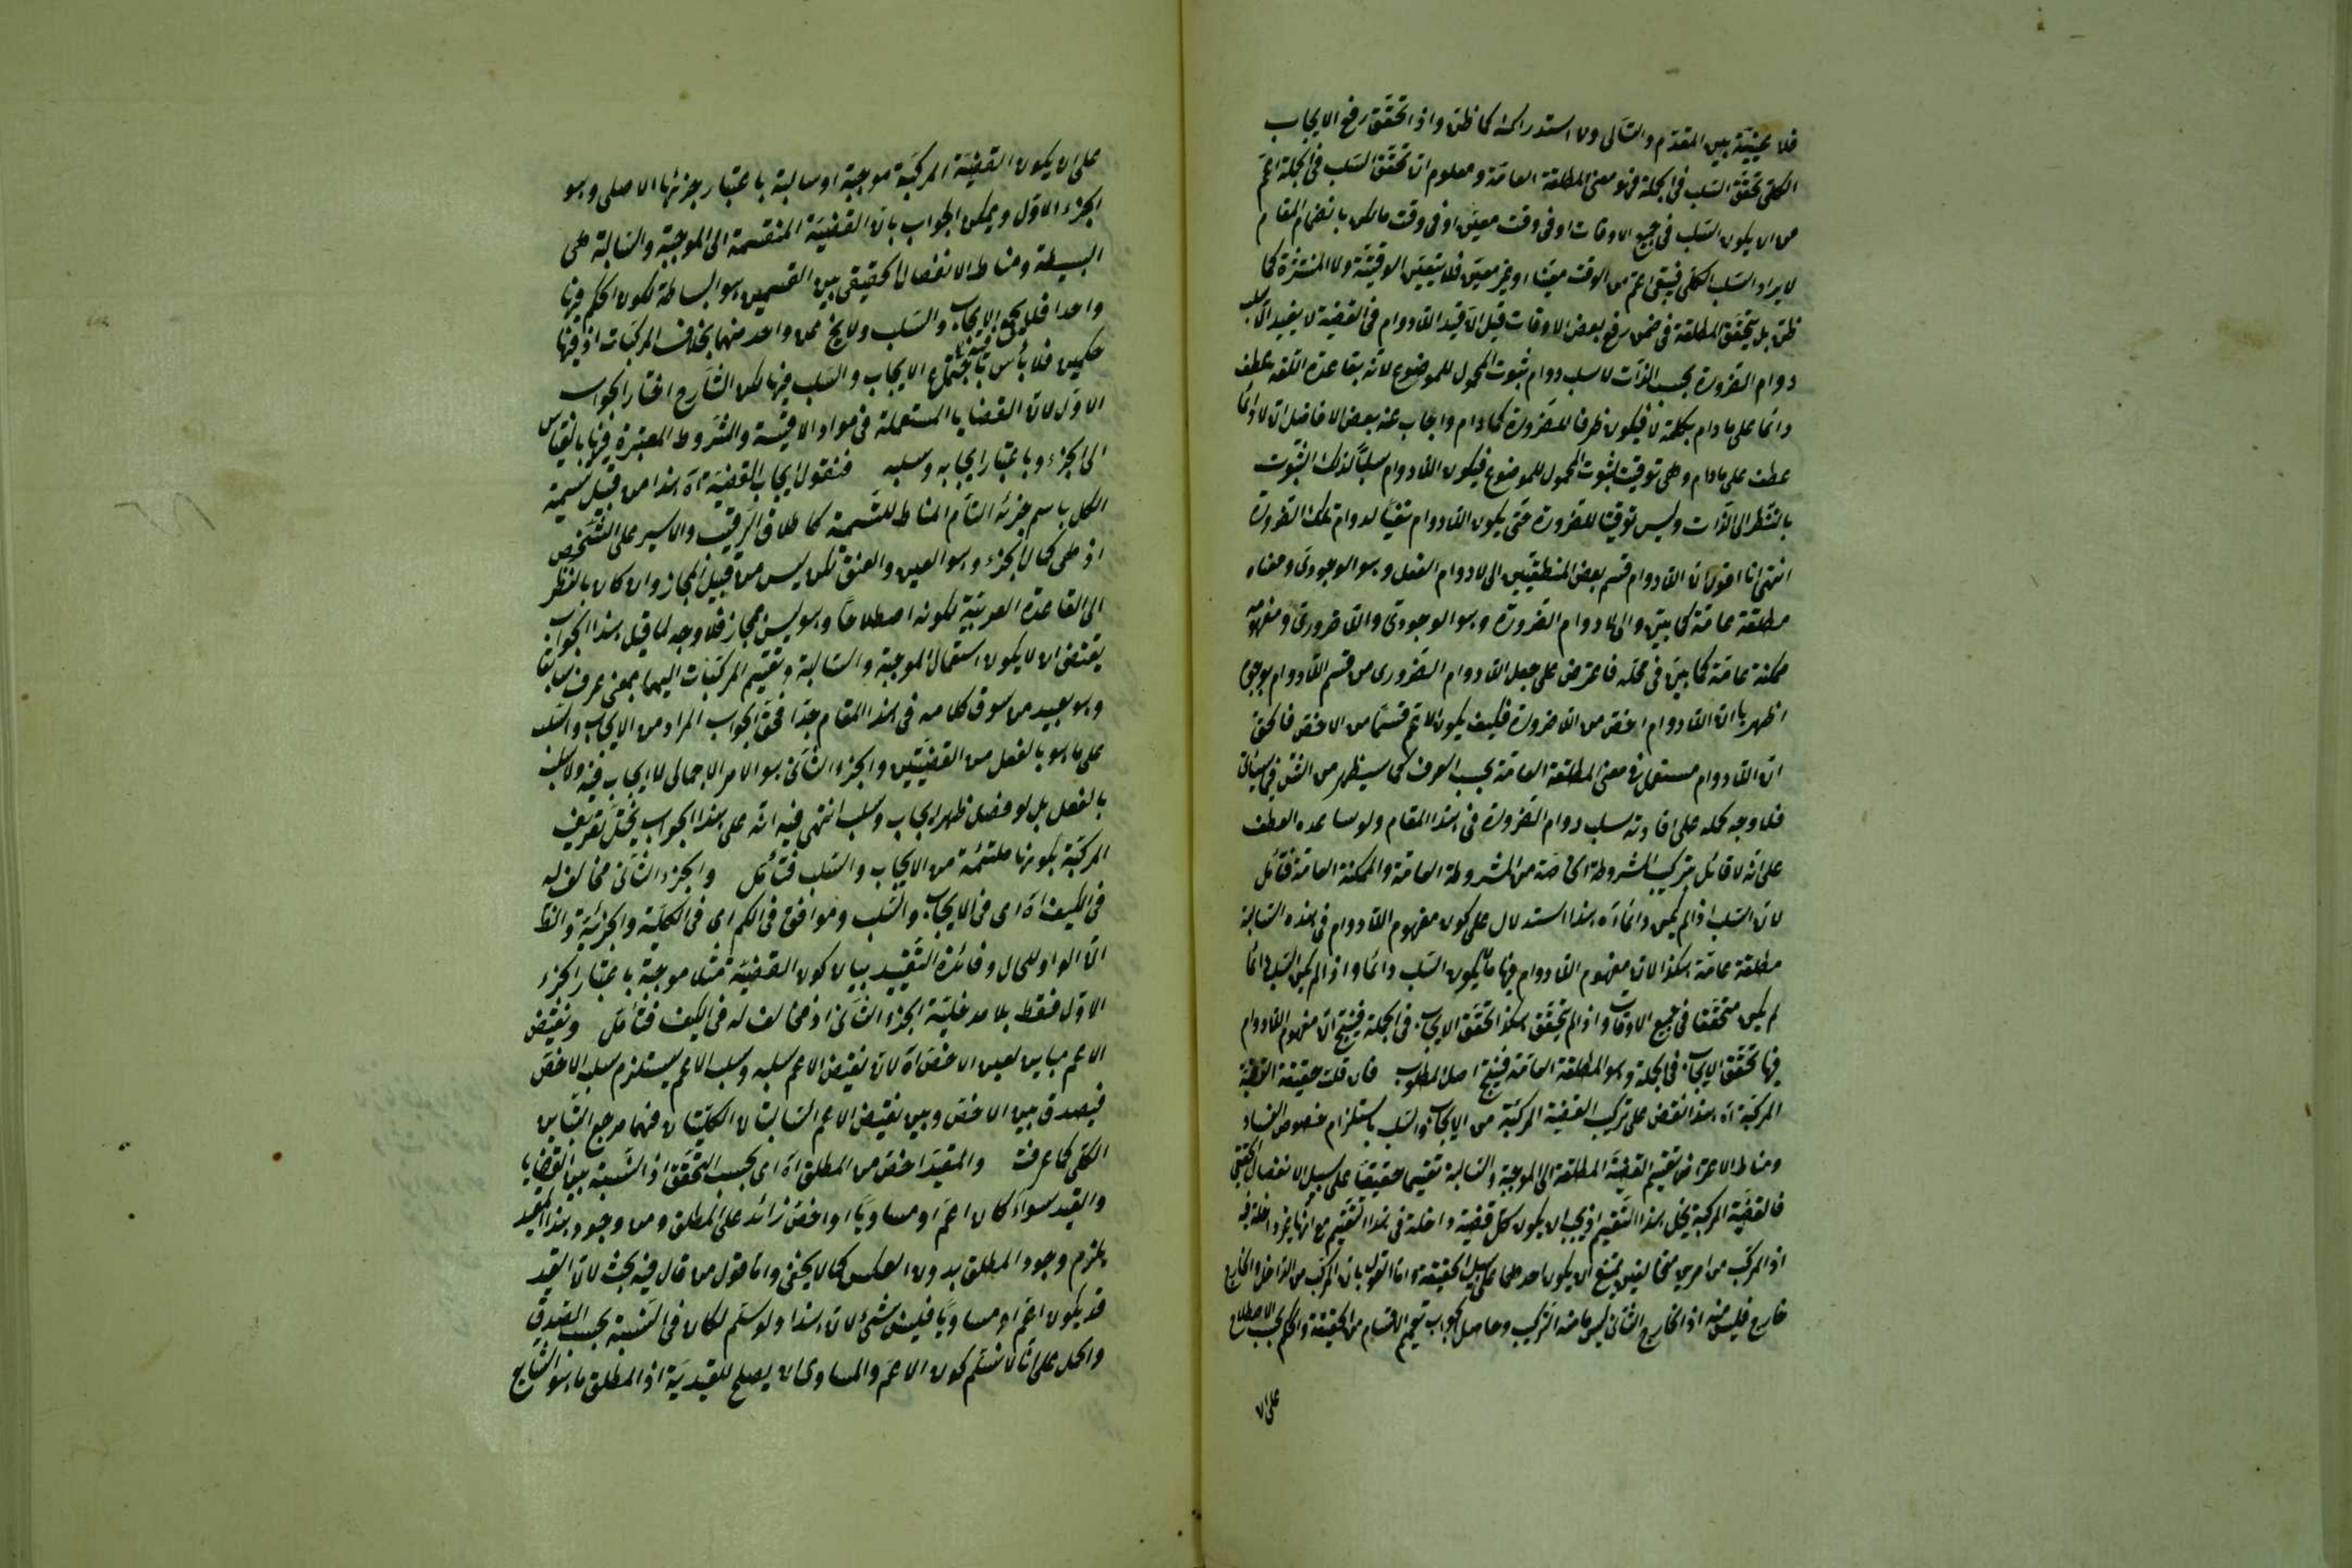 فلا عينية بين المقدم والتالى ولا استدراك كما ظن واذا تحقق رفع الايجاب
الكلى تحقق السلب فى الجملة فهو معنى المطلقة العامة ومعلوم ان تحقق السلب فى الجملة اعم
من ان يكون السلب فى جميع الاوقات او فى وقت معين او فى وقت ما لكن بانضمام المقام
لا يراد السلب الكلى فيبقى اعم من الوقت معينا او غير معين فلا يتعين الوقتية ولا المنتشرة كما
ظن بل يتحقق المطلقة فى ضمن رفع بعض الاوقات قيل ان قيد اللادوام فى القضية لا يفيد الا سلب
دوام الضرورة بحسب الذات لا سلب دوام ثبوت المحمول للموضوع لانه بقاعدة اللغة عطف
دائما على مادام بكلمة لا فيكون ظرفا للضرورة كمادام واجاب عنه بعض الافاضل ان لا دائما
عطف على مادام وهى توقيت لثبوت المحمول للموضوع فيكون اللادوام سلبا لذلك الثبوت
بالنظر الى الذات وليس توقيتا للضرورة حتى يكون اللادوام نفيا لدوام تلك الضرورة
انتهى انا اقول ان اللادوام قسم بعض المنطقيين الى لادوام الفعل وهو الوجودى ومعناه
مطلقة عامة كما بين والى لادوام الضرورة وهو الوجودى واللاضرورى ومفهومه
ممكنة عامة كما بين فى محله فاعترض على جعل اللادوام الضرورى من قسم اللادوام بوجوه
اظهرها ان اللادوام اخص من اللاضرورة فكيف يكون الاعم قسما من الاخص فالحق
ان اللادوام مستعمل فى معنى المطلقة العامة بحسب العرف كما سيظهر من الشق فى سيأتى
فلا وجه لحمله على افادته سلب دوام الضرورة فى هذا المقام ولو ساعده العطف
على انه لا قائل بتركيب المشروطة الخاصة من المشروطة العامة والممكنة العامة فتأمل
لان السلب اذا لم يكن دائما آه هذا استدلال على كون مفهوم اللادوام فى هذه السالبة
مطلقة عامة هكذا لان مفهوم اللادوام فيها لا يكون السلب دائما واذا لم يكن السلب دائما
لم يكن متحققا فى جميع الاوقات واذا لم يتحقق هكذا تحقق الايجاب فى الجملة فينتج ان مفهوم اللادوام
فيها تحقق الايجاب فى الجملة وهو المطلقة العامة فينتج اصل المطلوب فان قلت حقيقة القضية
المركبة آه هذا نقض على تركيب القضية المركبة من الايجاب والسلب باستلزام خصوص الفساد
ومناط الاعتراض تقسيم القضية المطلقة الى الموجبة والسالبة تقسيما حقيقيا على سبيل الانفصال الحقيقى
فالقضية المركبة يخل بهذا التقسيم اذ يجب ان يكون كل قضية داخلة فى هذا التقسيم مع انها غير داخلة فيه
اذ المركب من امرين متخالفين يمتنع ان يكون احدهما على سبيل الحقيقة واما القول بان المركب من الداخل والخارج
خارج فليس منه اذ الخارج الثانى ليس ما منه التركيب وحاصل الجواب تعميم الاقسام من الحقيقة والحكم بحسب الاصطلاح
على ان
على ان يكون القضية المركبة موجبة او سالبة باعتبار جزئها الاصلى وهو
الجزء الاول ويمكن الجواب بان القضية المنقسمة الى الموجبة والسالبة هى
البسيطة ومناط الانفصال الحقيقى بين القسمين هو البساطة لكون الحكم فيها
واحدا فلا يجمع الايجاب والسلب ولا يخ عن واحد منهما بخلاف المركبات اذ فيها
حكمين فلا بأس باجتماع الايجاب والسلب فيها لكن الشارح اختار الجواب
الاول لان القضايا المستعملة فى مواد الاقيسة والشروط المعتبرة فيها بالقياس
الى الجزء وباعتبار ايجابه وسلبه فنقول ايجاب القضية آه هذا من قبيل تسمية
الكل باسم جزئه التام المناط للتسمية كاطلاق الرقيب والاسير على الشخص
اذ هى كمال الجزء وهو العين والعنق لكن ليس من قبيل المجاز وان كان بالنظر
الى القاعدة العربية لكونه اصطلاحا وهو ليس مجاز فلا وجه لما قيل هذا الجواب
يقتضى ان لا يكون استعمال الموجبة والسالبة وتقسيم المركبات اليهما بمعنى عرف سابقا
وهو بعيد من سوق كلامه فى هذا المقام جدا فحق الجواب المراد من الايجاب والسلب
على ما هو بالفعل من القضيتين والجزء الثانى هو الامر الاجمالى لا ايجاب فيه ولا سلب
بالفعل بل لو فصل ظهر ايجاب وسلب انتهى فيه انه على هذا الجواب يختل تعريف
المركبة بكونها ملتئمة من الايجاب والسلب فتأمل والجزء الثانى مخالف له
فى الكيف آه اى فى الايجاب والسلب وموافق فى الكم اى فى الكلية والجزئية والظ
ان الواو للحال وفائدة التقييد بيان كون القضية مثلا موجبة باعتبار الجزء
الاول فقط بلا مدخلية الجزء الثانى اذ مخالف له فى الكيف فتأمل ونقيض
الاعم مباين لعين الاخص آه لان نقيض الاعم سلبه وسلب الاعم يستلزم سلب الاخص
فيصدق بين الاخص وبين نقيض الاعم السالبتان الكليتان فهما مرجع التباين
الكلى كما عرفت والمقيد اخص من المطلق آه اى بحسب التحقق اذ النسبة بين القضايا
والقيد سواء كان اعم او مساويا او اخص زائد على المطلق ومن وجود هذا المقيد
يلزم وجود المطلق بدون العكس كما لا يخفى واما قول من قال فيه بحث لان القيد
قد يكون اعم او مساويا فليس بشئ لان هذا ولو سلم لكان فى النسبة بحسب الصدق
والحمل على انا لا نسلم كون الاعم والمساوى لا يصلح للقيدية اذ المطلق ما هو الشايع